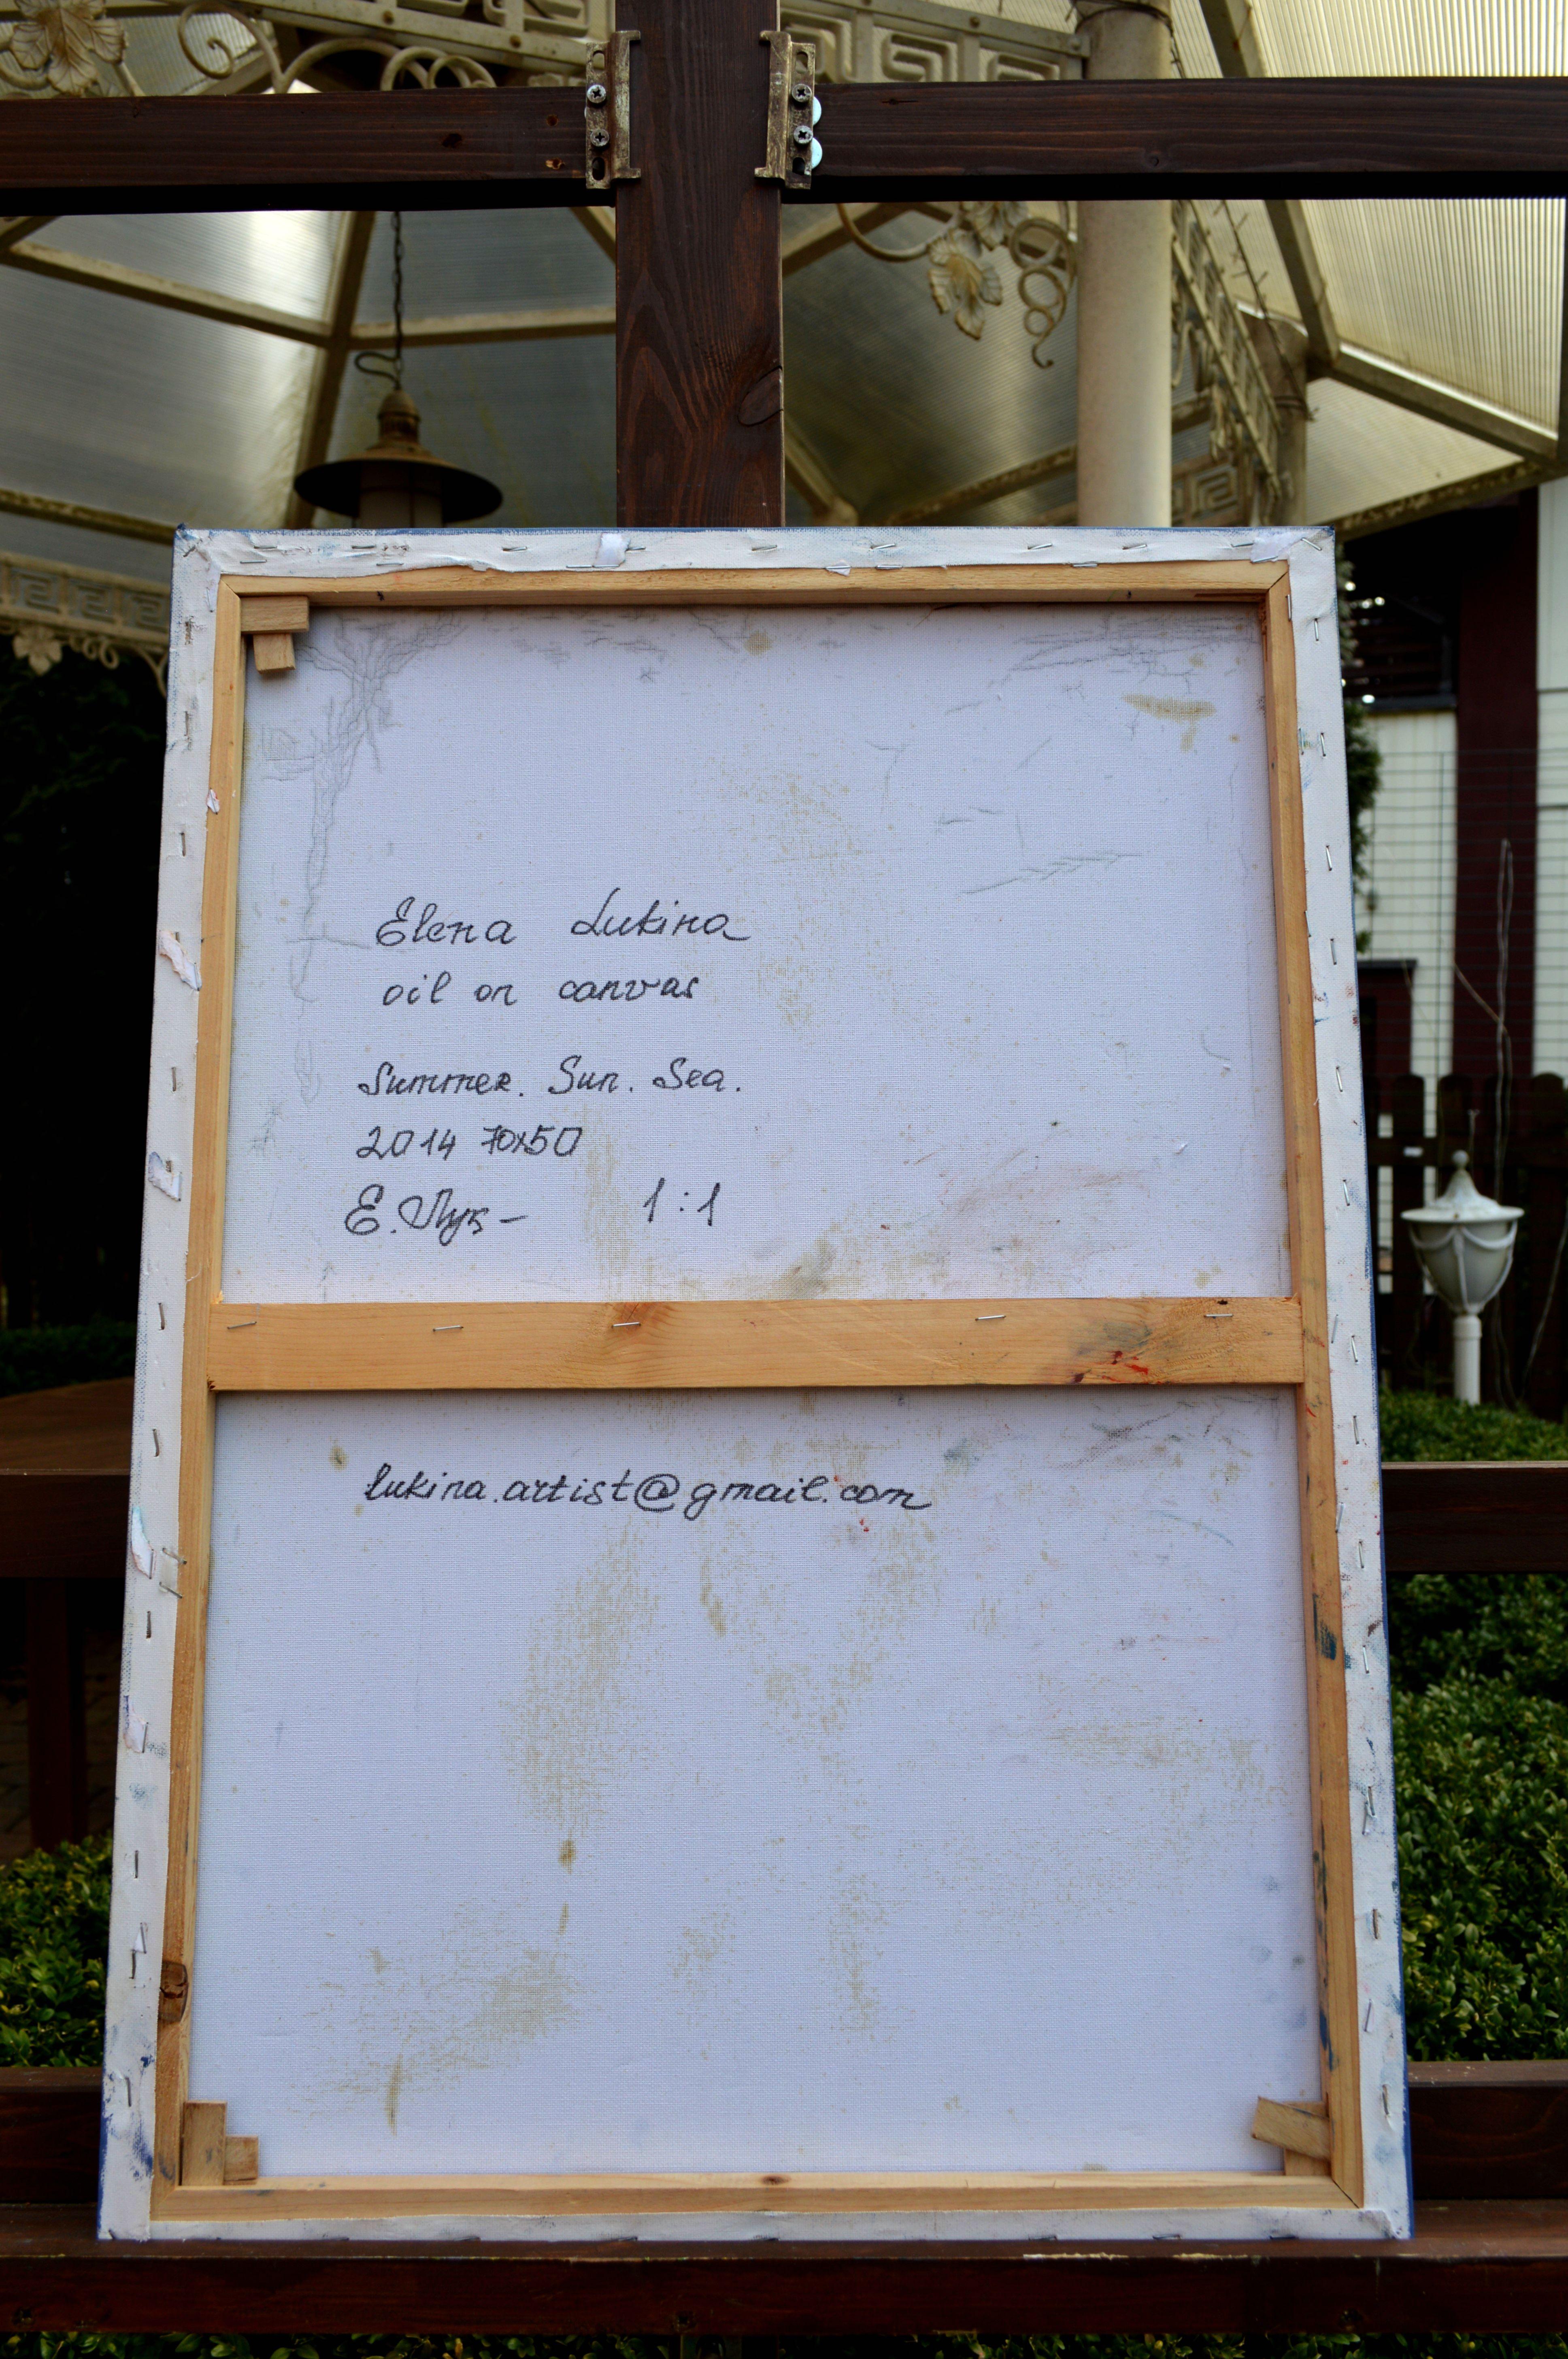 Elena Lukina
oil on canvas
Summer. Sun. Sea.
2014 70x50
E. 1:1
lukina.artist@gmail.com